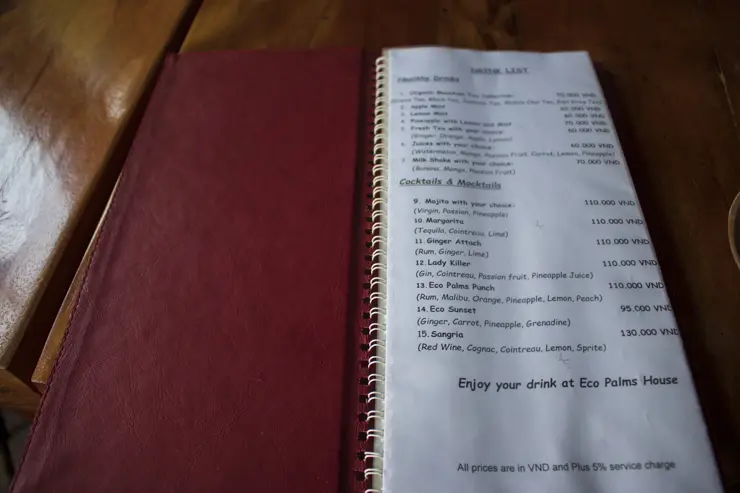 DRINK LIST
Healthy Drinks
1. Organic Mountain Tea Collection: 70.000 VND
2. Apple Mint 60.000 VND
3. Lemon Mint 60.000 VND
4. Pineapple with Lemon and Mint 70.000 VND
5. Fresh Tea with your choice: 60.000 VND
(Ginger, Orange, Apple, Lemon)
6. Juices with your choice: 60.000 VND
(Watermelon, Mango, Passion Fruit, Carrot, Lemon, Pineapple)
7. Milk Shake with your choice: 70.000 VND
(Banana, Mango, Passion Fruit)
Cocktails & Mocktails
9. Mojito with your choice: 110.000 VND
(Virgin, Passion, Pineapple)
10. Margarita 110.000 VND
(Tequila, Cointreau, Lime)
11. Ginger Attach 110.000 VND
(Rum, Ginger, Lime)
12. Lady Killer 110.000 VND
(Gin, Cointreau, Passion fruit, Pineapple Juice)
13. Eco Palms Punch 110.000 VND
(Rum, Malibu, Orange, Pineapple, Lemon, Peach)
14. Eco Sunset 95.000 VND
(Ginger, Carrot, Pineapple, Grenadine)
15. Sangria 130.000 VND
(Red Wine, Cognac, Cointreau, Lemon, Sprite)
Enjoy your drink at Eco Palms House
All prices are in VND and Plus 5% service charge